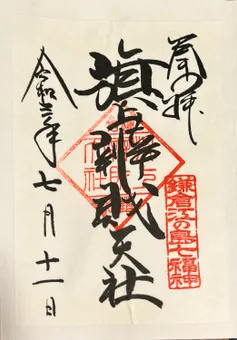 奉拝
旗上辨戝天社
鎌倉江の島七福神
令和三年七月十一日